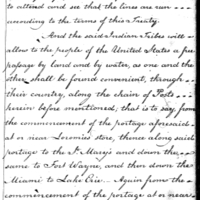 to attend and see that the lines are run
according to the terms of this Treaty.
And the said Indian Tribes will
allow to the people of the United States a free
passage by land and by water, as one and the
other shall be found convenient, through
their country, along the chain of Posts
herein before mentioned, that is to say, from
the commencement of the portage aforesaid
at or near Loromies store, thence along said
portage to the St. Marys and down the
same to Fort Wayne, and then down the
Miami to Lake Erie. Again from the
commencement of the portage at or near